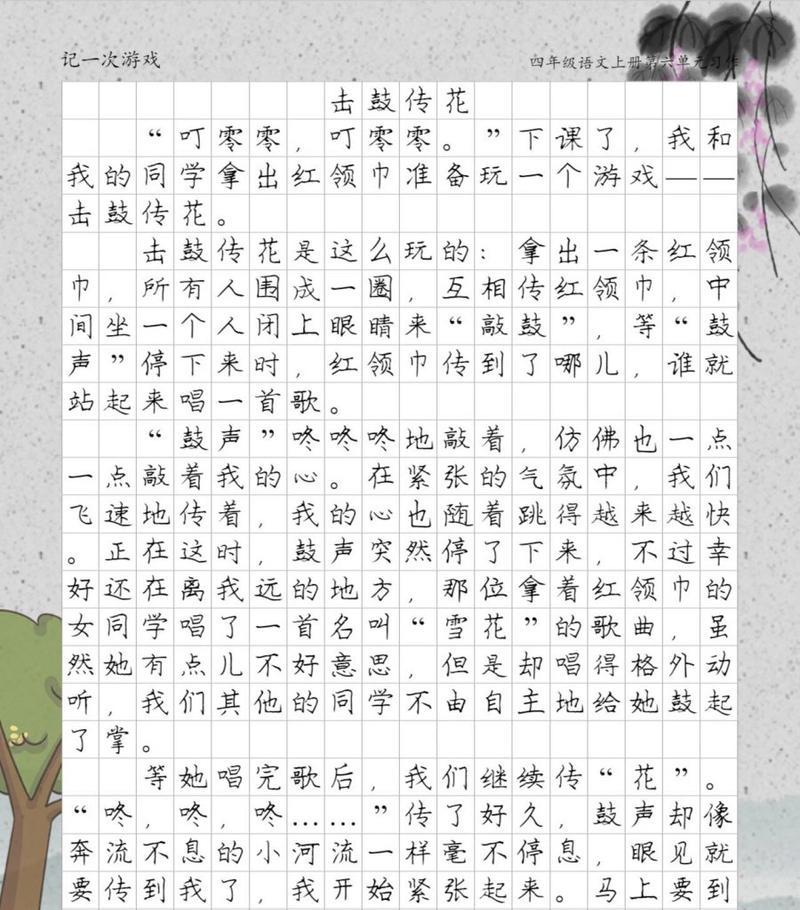 记一次游戏
四年级语文上册第六单元习作
击鼓传花
“叮零零，叮零零。”下课了，我和
我的同学拿出红领巾准备玩一个游戏——
击鼓传花。
击鼓传花是这么玩的：拿出一条红领
巾，所有人围成一圈，互相传红领巾，中
间坐一个人闭上眼睛来“敲鼓”，等“鼓
声”停下来时，红领巾传到了哪儿，谁就
站起来唱一首歌。
“鼓声”咚咚咚地敲着，仿佛也一点
一点敲着我的心。在紧张的气氛中，我们
飞速地传着，我的心也随着跳得越来越快
。正在这时，鼓声突然停了下来，不过幸
好还在离我远的地方，那位拿着红领巾的
女同学唱了一首名叫“雪花”的歌曲，虽
然她有点儿不好意思，但是却唱得格外动
听，我们其他的同学不由自主地给她鼓起
了掌。
等她唱完歌后，我们继续传“花”。
“咚，咚，咚……”传了好久，鼓声却像
奔流不息的小河流一样毫不停息，眼见就
要传到我了，我开始紧张起来。马上要到